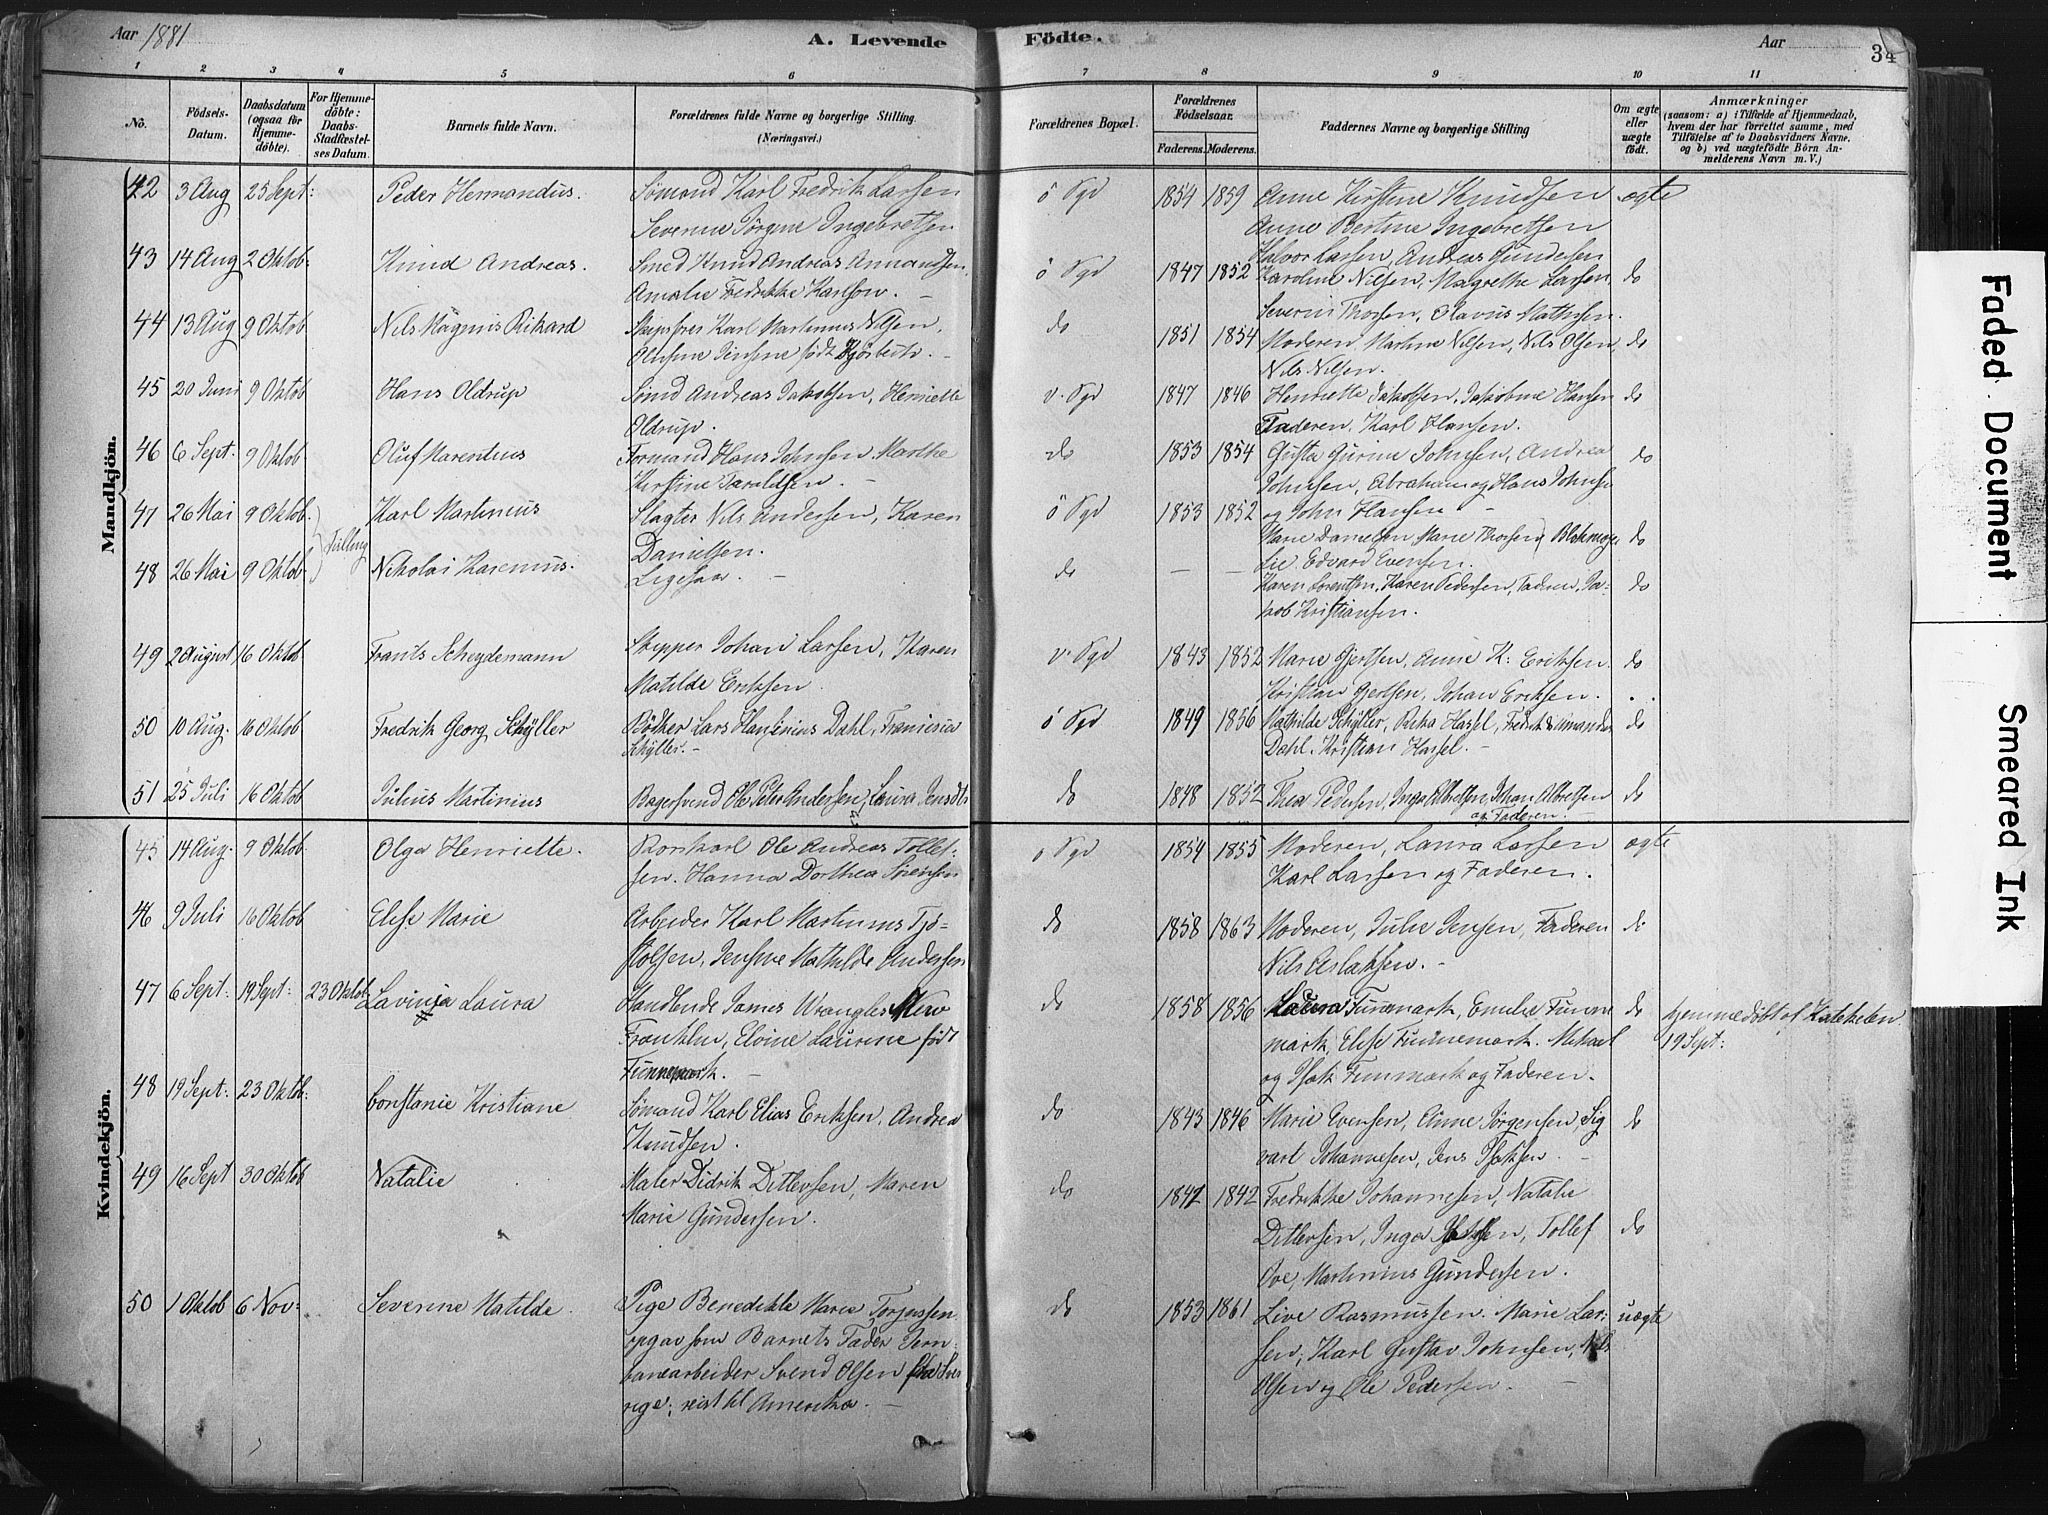 Aar 1881
A. Levende Födte.
Aar
34
1 2 3 4 5 6 7 8 9 10 11
No.
Födsels-Datum.
Daabsdatum (ogsaa för Hjemmedöbte).
For Hjemmedöbte: Daabs-Stadfæstelses Datum.
Barnets fulde Navn.
Forældrenes fulde Navne og borgerlige Stilling. (Næringsvei.)
Forældrenes Bopæl.
Forældrenes Födselsaar.
Faderens. Moderens.
Faddernes Navne og borgerlige Stilling
Om ægte eller uægte födt.
Anmærkninger
(saasom: a) i Tilfælde af Hjemmedaab,
hvem der har forrettet samme, med
Tilföielse af to Daabsvidners Navne.
og b) ved uægtefödte Börn An-
melderens Navn m. V.)
Mandkjön.
42 3 Aug 25 Sept: Peder Hermandius. Sömand Karl Fredrik Larsen ö Sgd 1854 1859 Anne Kirstine Knudsen ægte
Severine Jörgine Ingebretsen Anne Bertine Ingebretsen
Halvor Larsen, Andreas Gundersen
43 14 Aug 2 Oktob: Knud Andreas. Smed Knud Andreas Amandsen, ö Sgd 1847 1852 Karoline Nilsen, Magrethe Larsen do
Amalie Fredrikke Karlson. — Severin Thorsen, Olavus Mathisen.
44 13 Aug 9 Oktob Nils Magnus Rikard Skipsfrer Karl Martinus Nilsen, do 1851 1854 Moderen Martine Nilsen, Nils Olsen, do
Olufine Jensine født Nils Nilsen.
45 20 Juni 9 Oktob Hans Oldrup Sömd Andreas Jakobsen, Henriette v. Sgd 1847 1846 Henriette Jakobsen, Jakobine Hansen do
Oldrup. Faderen, Karl Hansen.
46 6 Sept: 9 Oktob Oluf Marentius Formand Hans Johnsen Marthe do 1853 1854 Gusta Gurine Johnsen, Andrea do
Kirstine Taraldsen. — Johnsen, Abraham og Hans Johnsen
og John Hansen —
47 26 Mai 9 Oktob. Tvilling Karl Martinius Slagter Nils Andersen, Karen ö Sgd 1853 1852 Marie Danielsen Marie Thorsen, do
Danielsen. Lie, Edvard Evensen.
48 26 Mai 9 Oktob Nikolai Karenius. Ligesaa — do — — Karen Lorentsen, Karen Pedersen, Faderen, Ja- do
kob Kristiansen.
49 2 August 16 Oktob Frants Scheydemann Skipper Johan Larsen, Karen v. Sgd 1843 1852 Marie Gjertsen, Anne K: Eriksen. do
Matilde Eriksen. Kristian Gjertsen, Johan Eriksen.
50 10 Aug. 16 Oktob Fredrik Georg Schÿller Bödker Lars Dahl, ö Sgd 1849 1856 Mathilde Schÿller, Rika Hassel, Fredrik do
Schÿller. — Dahl, Kristian Hassel. —
51 25 Juli 16 Oktob Julius Martinius Bagersvend Ole Peter Andersen, Laura Jensdtr do 1848 1852 Thea Pedersen, Inga Albretsen, Johan Albretsen do
og Faderen. —
Kvindekjön.
45 14 Aug. 9 Oktob Olga Henriette. Ole Andreas Tollef- ö Sgd 1854 1855 Moderen, Laura Larsen ægte
sen. Hanna Dorthea Sörensen Karl Larsen og Faderen.
46 9 Juli 16 Oktob Elise Marie Arbeider Karl Martinius Tjö- do 1858 1863 Moderen, Julie Jensen, Faderen do
stolsen, Jensine Mathilde Andersen Nils Aslaksen. —
47 6 Sept: 19 Sept: 23 Oktob Lavinia Laura Handlende James Wrangles New do 1858 1856 Laura Funnmark, Emelie Funne do hjemmedöbt af Katekelen
Franklin, Elvine Laurine født mark, Elise Funnemark. Mikael 19 Sept:
Funnemark. — og Isak Funnmark og Faderen.
48 19 Sept: 23 Oktob: Constanse Kristiane Sömand Karl Elias Eriksen. Andrea do 1843 1846 Marie Evensen, Anne Jörgensen, Sig do
Knudsen. vart Johannesen, Jens Isaksen. —
49 16 Sept 30 Oktob Natalie Maler Didrik Ditlevsen, Maren do 1842 1842 Fredrikke Johannesen, Natalie
Marie Gundersen. Ditlevsen, Inga Tollef do
Ove, Martinius Gundersen.
50 1 Oktob 6 Nov: Severine Matilde. Pige Benedikte Marie Torjussen. do 1853 1861 Live Rasmussen. Marie Lar- uægte
opgav som Barnets Fader Jern- sen, Karl Gustav Johnsen, Nils
banearbeider Svend Olsen fra Sve Olsen og Ole Pedersen. —
rige; reist til Amerika. —
Faded Document
Smeared Ink